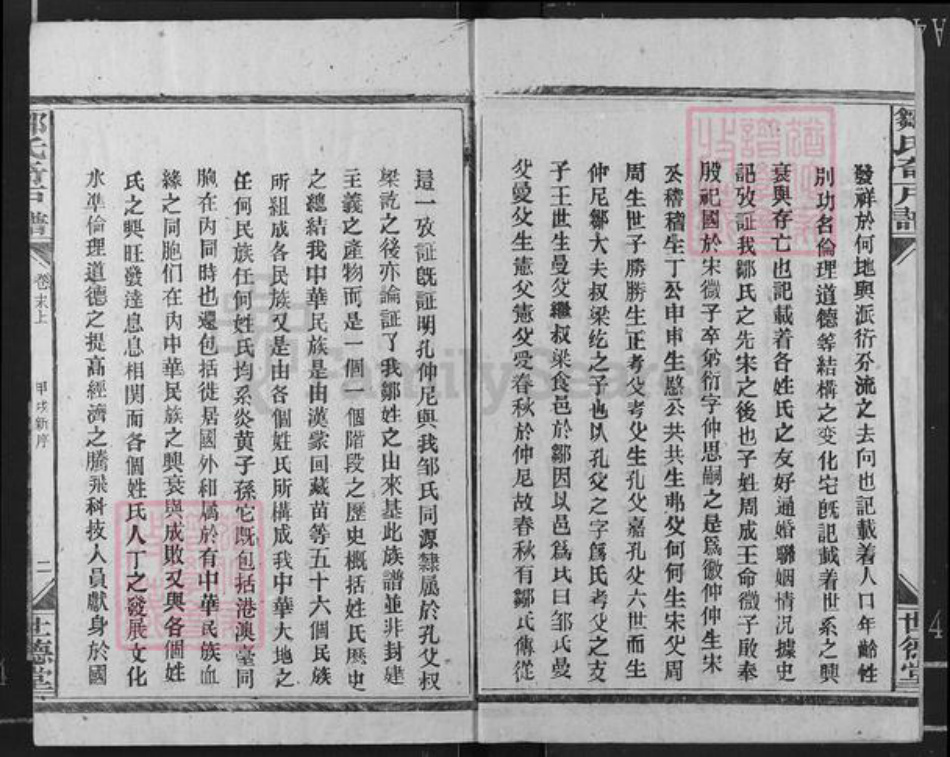 鄒氏
發祥於何地與派衍分流之去向也記載着人口年齡性
別功名倫理道德等結構之变化它既記載着世系之興
衰與存亡也記載着各姓氏之友好通婚聯姻情況據史
記攷証我鄒氏之先宋之後也子姓周成王命微子啟奉
殷祀國於宋微子卒弟衍字仲思嗣之是爲微仲仲生宋
公稽稽生丁公申申生愍公共共生弗父何何生宋父周
周生世子勝勝生正考父考父生孔父嘉孔父六世而生
仲尼鄒大夫叔梁纥之子也以孔父之字爲氏考父之支
子王世生曼父繼叔梁食邑於鄒因以邑爲氏曰邹氏曼
父曼父生憲父憲父愛春秋於仲尼故春秋有鄒氏傳從
世德堂
這一攷証既証明孔仲尼與我邹氏同源隸属於孔父叔
梁訖之後亦論証了我鄒姓之由來基此族譜並非封建
主義之産物而是一個一個階段之歷史概括姓氏歷史
之總結我中華民族是由漢蒙回藏苗等五十六個民族
所組成各民族又是由各個姓氏所構成我中華大地之
任何民族任何姓氏均系炎黄子孫它既包括港澳臺同
胞在内同時也還包括徙居國外和属於有中華民族血
緣之同胞们在内中華民族之興衰與成敗又與各個姓
氏之興旺發達息息相関而各個姓氏人丁之發展文化
水準倫理道德之提高經濟之騰飛科技人員獻身於國
卷末上
甲戌新序
二
世德堂
FamilySearch